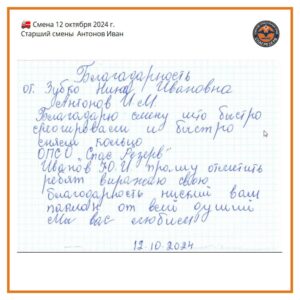 🚒 Смена 12 октября 2024 г.
Старший смены Антонов Иван
Благодарность
от Зубко Нина Ивановна
Антонов И М
Благодарю смену што быстро
среогировали и быстро
сняли кольцо
ОПСО "Спас Резерв"
Иванов Ю.И прошу отметить
ребят выражаю свою
благодарность низкий вам
паклон от всей душий
Мы вас любим
12.10.2024